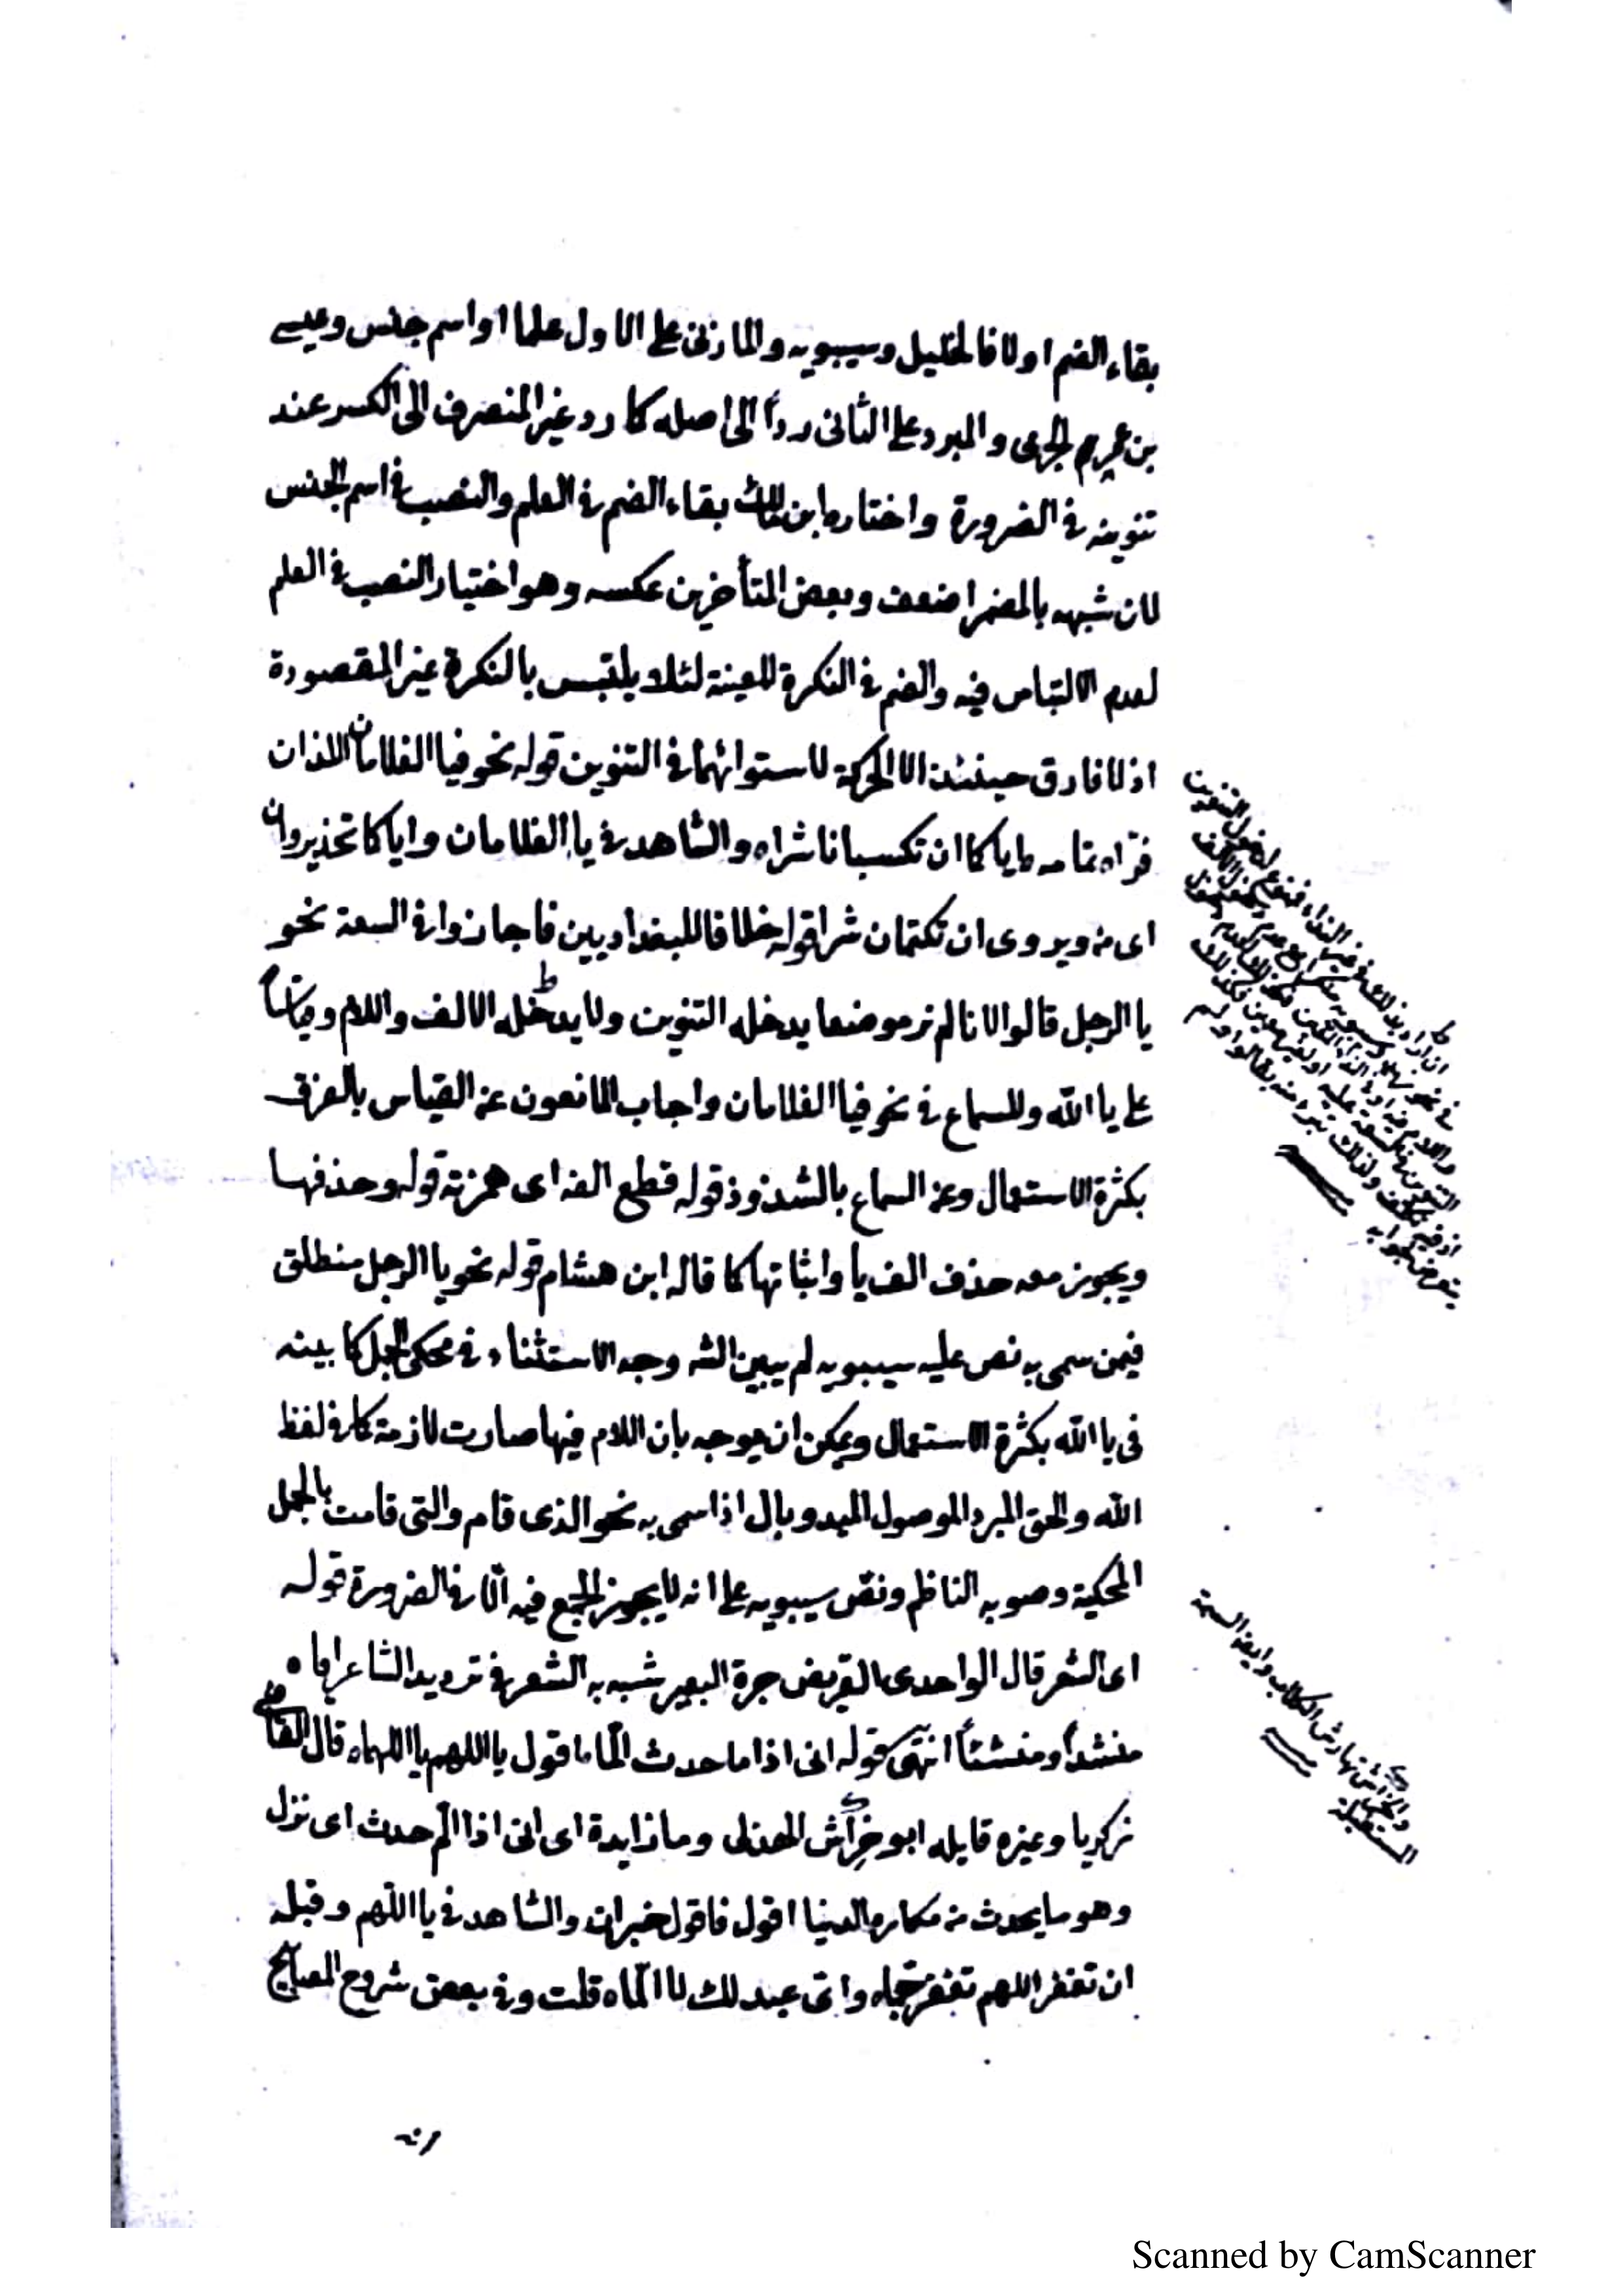 بقاء الضم اولا فالخليل وسيبويه والمازنى على الاول علما او اسم جنس وعيسى
بن عمر والجرمى والمبرد على الثانى ردا الى اصله كما رد غير المنصرف الى الكسر عند
تنوينه فى الضرورة واختار ابن مالك بقاء الضم فى العلم والنصب فى اسم الجنس
لان شبهه بالمضمر اضعف وبعض المتأخرين عكسه وهو اختيار النصب فى العلم
لعدم الالتباس فيه والضم فى النكرة المعينة لئلا يلتبس بالنكرة غير المقصودة
اذ لا فارق حينئذ الا الحركة لاستوائهما فى التنوين قوله نحو فيا الغلامان اللذان
فرّاه تمامه اياكما ان تكسبانا شراه والشاهد فى يا الغلامان واياكما تحذير وان
اى من ويروى ان تكتمان شرا قوله خلافا للبغداديين فاجازوا فى السعة نحو
يا الرجل قالوا لانا لم نر موضعا يدخله التنوين ولا يدخله الالف واللام وقياسا
على يا الله وللسماع فى نحو فيا الغلامان واجاب المانعون عن القياس بالفرق
بكثرة الاستعمال وعن السماع بالشذوذ قوله قطع الفه اى همزته قوله وحذفها
ويجوز معه حذف الف يا واثباتها كما قاله ابن هشام قوله نحو يا الرجل منطلق
فيمن سمى به نص عليه سيبويه لم يبين الشه وجه الاستثناء فى محكى الجمل كما بينه
فى يا الله بكثرة الاستعمال ويمكن ان يوجه بان اللام فيها صارت لازمة كما فى لفظ
الله والحق المبرد الموصول المبدو بال اذا سمى به نحو الذى قام والتى قامت بالجمل
المحكية وصوبه الناظم ونص سيبويه على انه لا يجوز الجمع فيه الا فى الضرورة قوله
اى الشعر قال الواحدى القريض جرة البعير شبه به الشعر فى ترديد الشاعر اياه
منشدا ومنشئا انتهى قوله انى اذا ما حدث الما اقول يا اللهم يا اللهما قال القاضى
زكريا وغيره قايله ابو خراش الهذلى وما زايدة اى انى اذا الم حدث اى نزل
وهو ما يحدث من مكاره الدنيا اقول فاقول خبر ان والشاهد فى يا اللهم وقبله
ان تغفر اللهم تغفر جما واى عبد لك لا الما قلت وفى بعض شروح المصابيح
Scanned by CamScanner